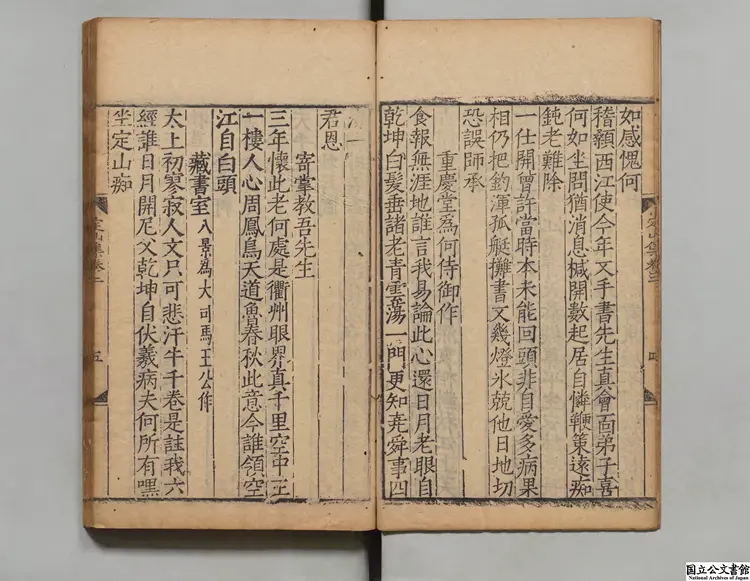 如感愧何
稽顙西江使今年又手書先生真會面弟子喜
何如坐問猶消息椷開數起居自憐鞭策遠痴
鈍老難除
一仕開曾許當時本未能回頭非自愛多病果
相仍把釣渾孤艇攤書又幾燈氷兢他日地切
恐誤師承
重慶堂爲何侍御作
食報無涯地誰言我易論此心還日月老眼自
乾坤白髮垂諸老青雲蕩一門更知堯舜事四
定山集卷二
四
君恩
寄掌教吾先生
三年懷此老何處是衢州眼界真千里空中正
一樓人心周鳳鳥天道魯春秋此意今誰領空
江自白頭
藏書室八景爲大司馬王公作
太上初寥寂人文只可悲汗牛千卷是註我六
經誰日月開尼父乾坤自伏羲病夫何所有嘿
坐定山痴
定山集卷二
五
国立公文書館
National Archives of Japan